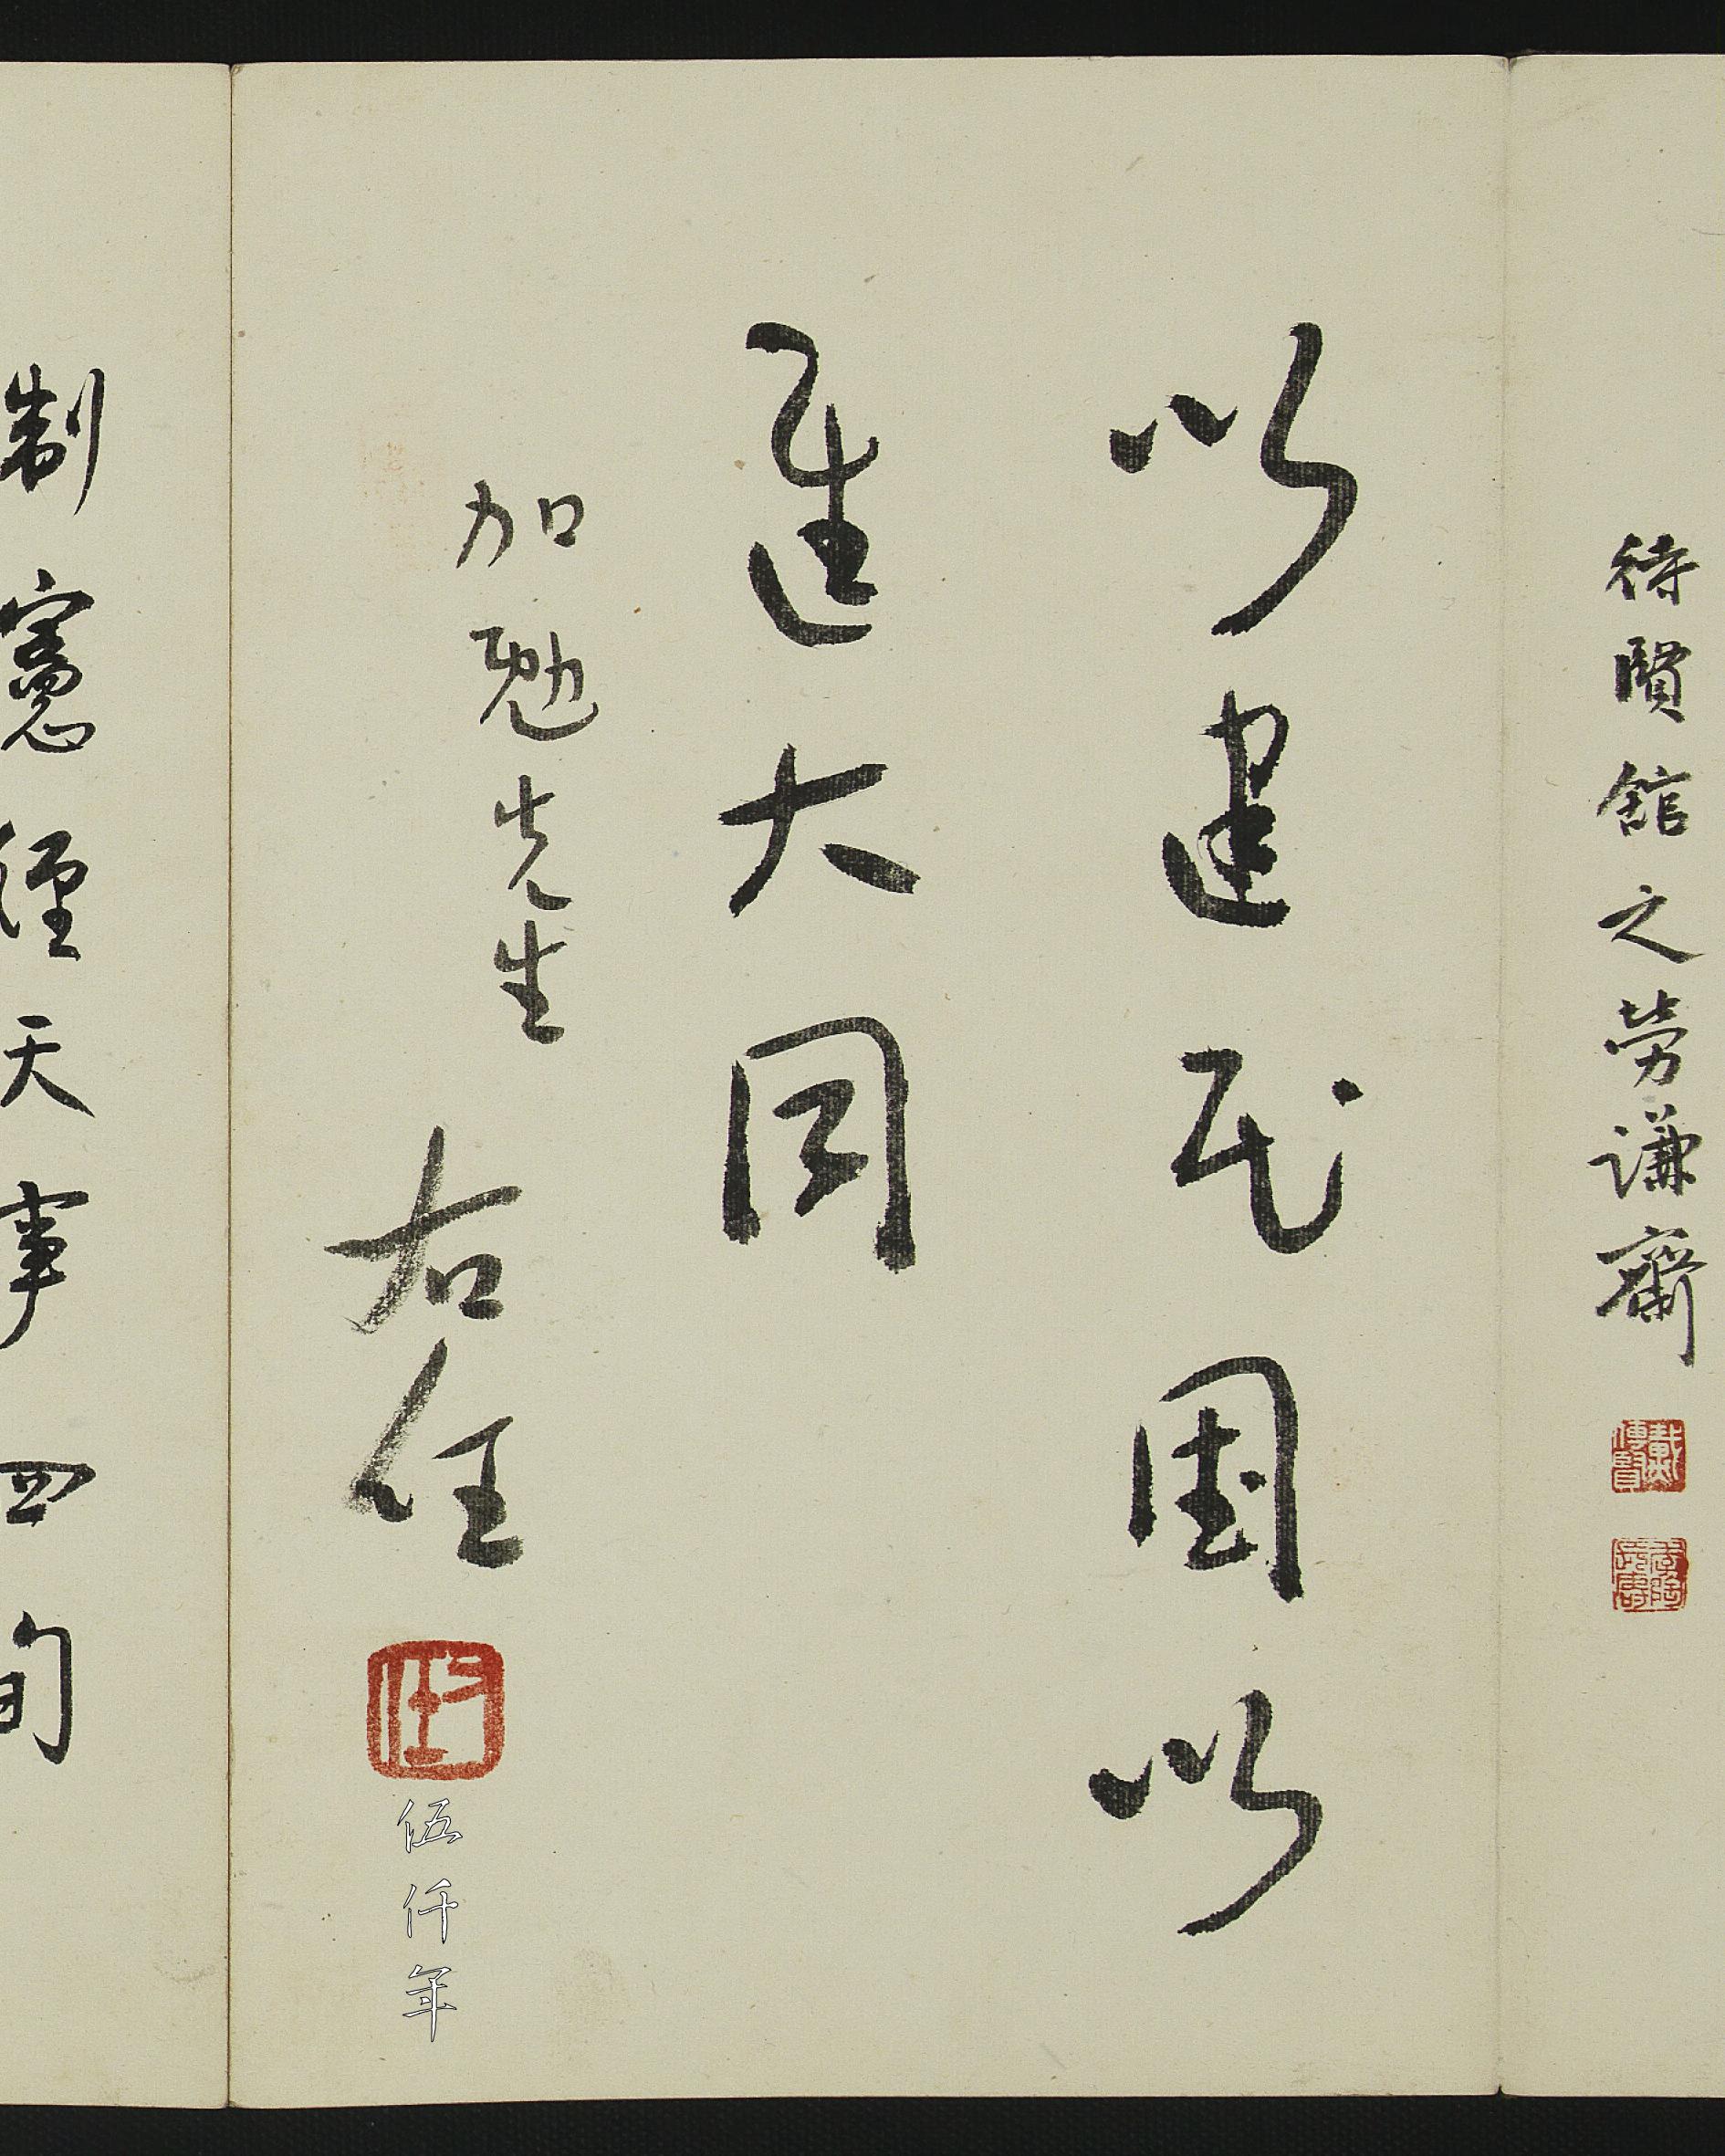 待賢館之勞謙齋
以建民國以
進大同
加勉先生
右任
伍仟年
制憲經天事四旬